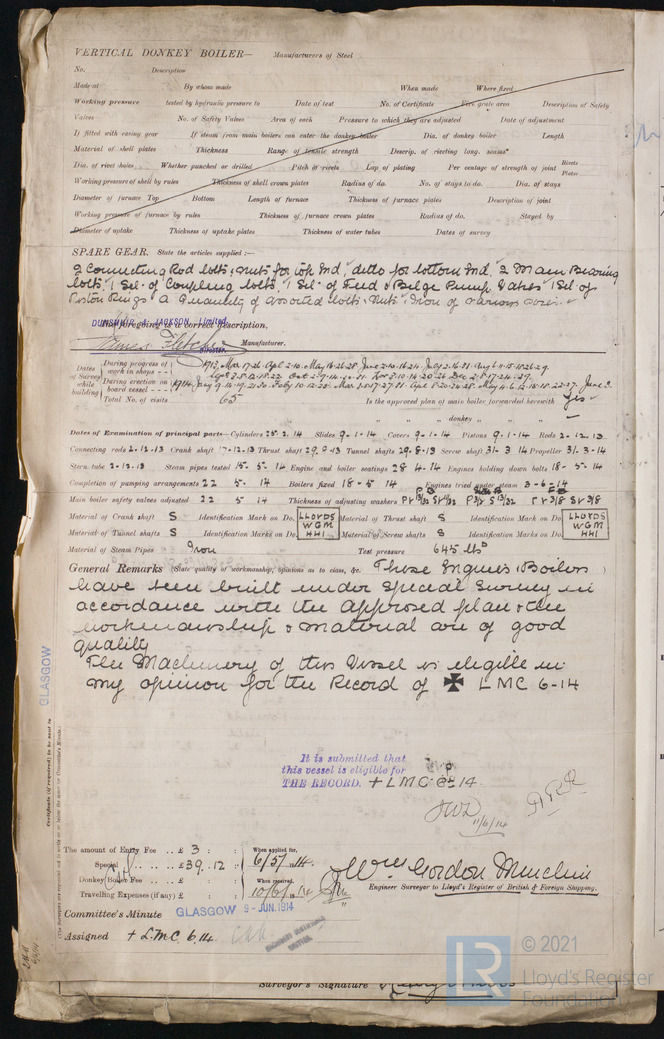 VERTICAL DONKEY BOILER— Manufacturers of Steel
No. Description
Made at By whom made When made Where fixed
Working pressure tested by hydraulic pressure to Date of test No. of Certificate Fire grate area Description of Safety
Valves No. of Safety Valves Area of each Pressure to which they are adjusted Date of adjustment
If fitted with easing gear If steam from main boilers can enter the donkey boiler Dia. of donkey boiler Length
Material of shell plates Thickness Range of tensile strength Descrip. of riveting long. seams
Dia. of rivet holes Whether punched or drilled Pitch of rivets Lap of plating Per centage of strength of joint Rivets Plates
Working pressure of shell by rules Thickness of shell crown plates Radius of do. No. of stays to do. Dia. of stays
Diameter of furnace Top Bottom Length of furnace Thickness of furnace plates Description of joint
Working pressure of furnace by rules Thickness of furnace crown plates Radius of do. Stayed by
Diameter of uptake Thickness of uptake plates Thickness of water tubes Dates of survey
SPARE GEAR. State the articles supplied :—
2 Connecting Rod bolts & nuts for top End, ditto for bottom End, 2 Main Bearing
bolts, 1 Set of Coupling bolts, 1 Set of Feed & Bilge Pump Valves 1 Set of
Piston Rings A Quantity of assorted bolts & Nuts Iron of various sizes.
DUNSMUIR & JACKSON Limited.
The foregoing is a correct description,
James Fletcher Manufacturer.
Dates of Survey while building
During progress of work in shops - - 1913. Mar 17-26. Apl 2-10. May 16-26-28 June 2-10-16-24 July 2-16-31
During erection on board vessel - - - 1914 Jany 9-14-19 Feby 10-12-25
Total No. of visits 65 Is the approved plan of main boiler forwarded herewith Yes
" " " donkey " "
Dates of Examination of principal parts—Cylinders 25. 2. 14 Slides 9-1-14 Covers 9-1-14 Pistons 9-1-14 Rods 2-12-13
Connecting rods 2-12-13 Crank shaft Thrust shaft Tunnel shafts 29-8-13 Screw shaft 31-3 14 Propeller 31.3-14
Stern tube 2-12-13 Steam pipes tested 15-5-14 Engine and boiler seatings 28 4-14 Engines holding down bolts 18-5-14
Completion of pumping arrangements 22 5. 14 Boilers fixed 18-5 14 Engines tried under steam 3-6-14
Main boiler safety valves adjusted 22 5 14 Thickness of adjusting washers
Material of Crank shaft S Identification Mark on Do. LLOYDS WGM HHI Material of Thrust shaft S Identification Mark on Do. LLOYDS WGM HHI
Material of Tunnel shafts S Identification Marks on Do. Material of Screw shafts S Identification Marks on Do.
Material of Steam Pipes Iron Test pressure 645 lbs
General Remarks (State quality of workmanship, opinions as to class, &c. These Engines & Boilers )
have been built under Special Survey in
accordance with the approved plan & the
workmanship & material are of good
quality
The Machinery of this Vessel is eligible in
my opinion for the Record of ✠ LMC 6-14
It is submitted that
this vessel is eligible for
THE RECORD. + LMC 6-14.
JWD
11/6/14
GLASGOW
Certificate (if required) to be sent to
(The Surveyors are requested not to write on or below the space for Committee's Minute.)
The amount of Entry Fee .. £ 3 : : When applied for,
Special .. .. £39. 12 : 6/5/ .14.
Donkey Boiler Fee .. .. £ : : When received,
Travelling Expenses (if any) £ : : 10/6/ 14
Wm Gordon Minchin
Engineer Surveyor to Lloyd's Register of British & Foreign Shipping.
Committee's Minute GLASGOW 9-JUN.1914
Assigned + L.M.C. 6,14.
Surveyor's Signature
© 2021
Lloyd's Register
Foundation
LR